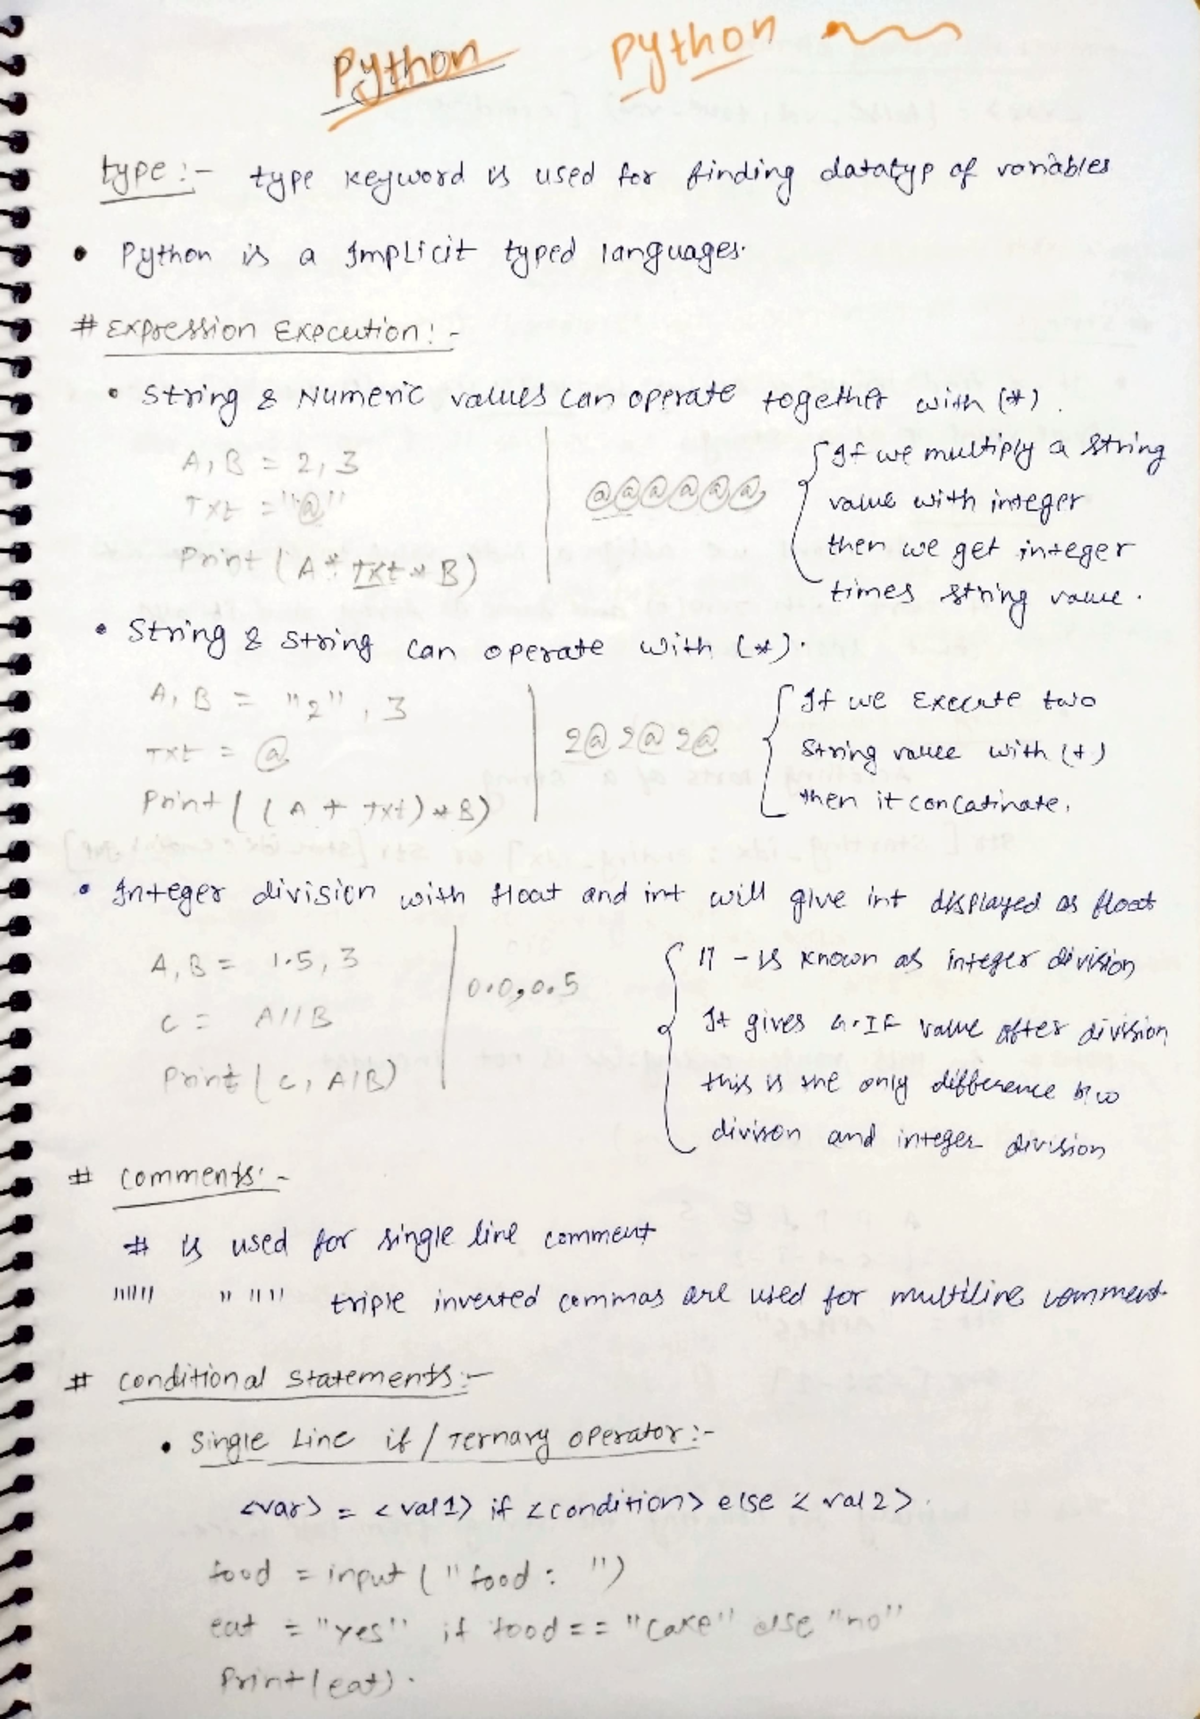 Python Python
type :- type keyword is used for finding datatyp of variables
• Python is a Implicit typed languages.
# Expression Execution :-
• String & Numeric values can operate together with (*).
A, B = 2, 3
Txt = "@"
Print (A * txt * B)
@@@@@@
If we multiply a string
value with integer
then we get integer
times string value.
• String & string can operate with (*).
A, B = "2", 3
Txt = @
Print ( (A + Txt) * B)
2@2@2@
If we Execute two
String value with (+)
then it concatinate.
• Integer division with float and int will give int displayed as float
A, B = 1.5, 3
C = A//B
Print ( C, A/B)
0.0, 0.5
// - is known as integer division
It gives G.IF value after division
this is the only difference b/w
divison and integer division
# Comments :-
# is used for single line comment
""" """ triple inverted commas are used for multiline comment
# Conditional Statements :-
• Single Line if / Ternary operator :-
<var> = <val1> if <condition> else <val2>.
food = input ("food : ")
eat = "yes" if food == "cake" else "no"
Print(eat).